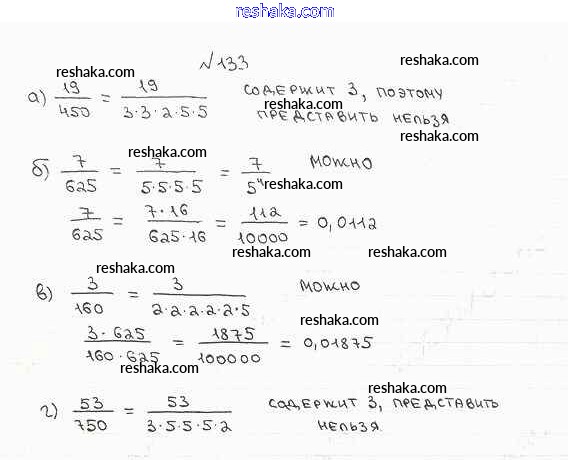 reshaka.com
№133
reshaka.com
reshaka.com
а) 19/450 = 19/(3·3·2·5·5) содержит 3, поэтому
reshaka.com
представить нельзя
reshaka.com
reshaka.com
б) 7/625 = 7/(5·5·5·5) = 7/5⁴ можно
reshaka.com
7/625 = 7·16/(625·16) = 112/10000 = 0,0112
reshaka.com
reshaka.com
reshaka.com
в) 3/160 = 3/(2·2·2·2·2·5) можно
reshaka.com
3·625/(160·625) = 1875/100000 = 0,01875
reshaka.com
reshaka.com
г) 53/750 = 53/(3·5·5·5·2) содержит 3, представить
нельзя
reshaka.com